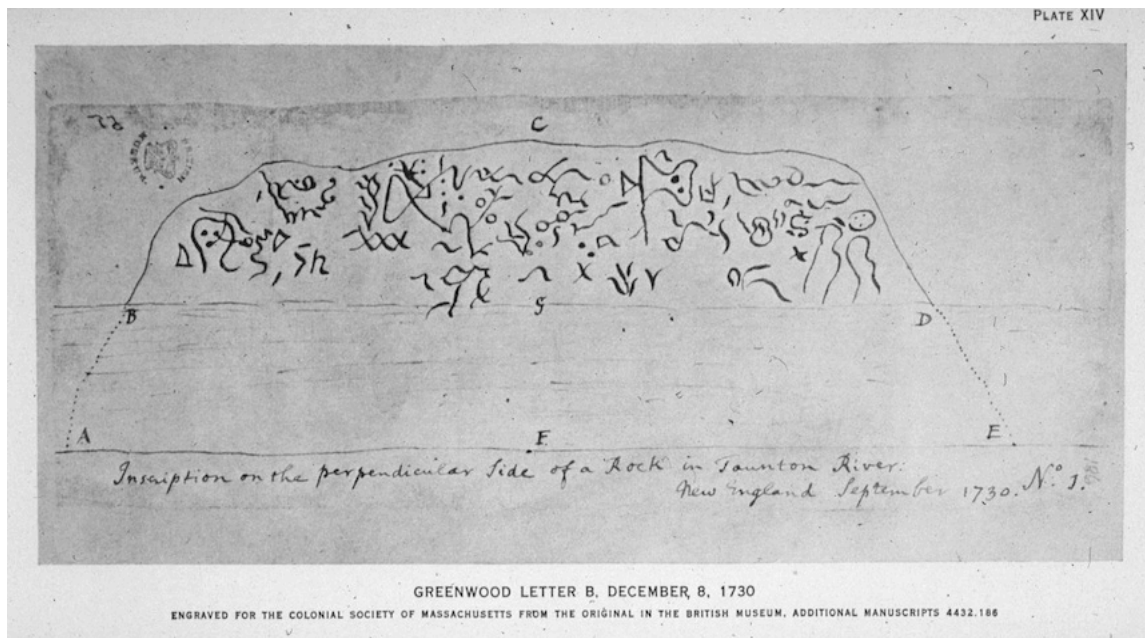 PLATE XIV
22
BRITISH MUSEUM
C
B
G
D
A
F
E
Inscription on the perpendicular Side of a Rock in Taunton River:
New England September 1730. No. 1.
GREENWOOD LETTER B, DECEMBER 8, 1730
ENGRAVED FOR THE COLONIAL SOCIETY OF MASSACHUSETTS FROM THE ORIGINAL IN THE BRITISH MUSEUM, ADDITIONAL MANUSCRIPTS 4432.186